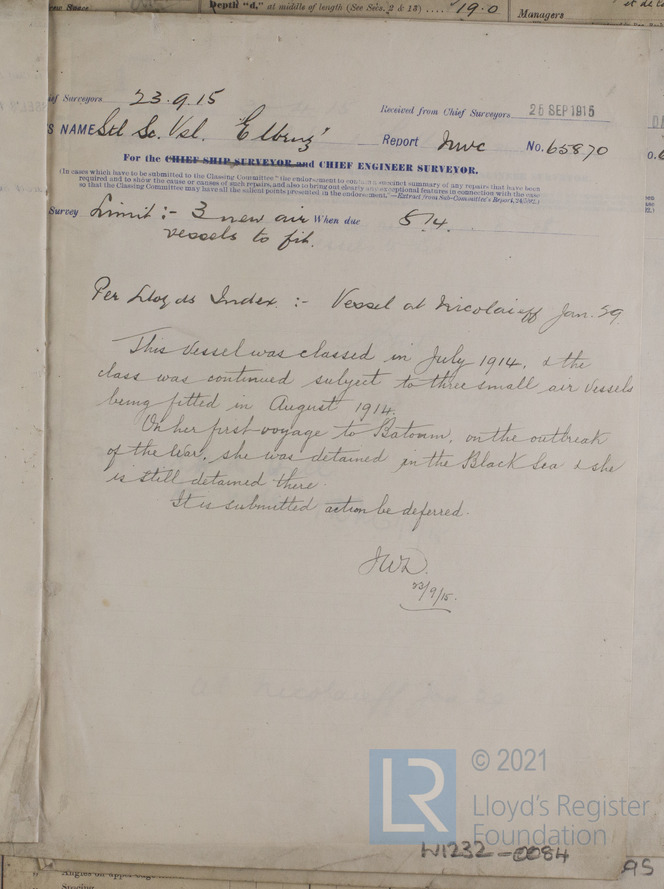 Depth "d," at middle of length (See Secs. 2 & 13) .... 19.0
Managers
ief Surveyors 23.9.15
Received from Chief Surveyors 25 SEP 1915
S NAME Stl Sc. Vsl. "Elbruz" Report Nwc No. 65870
For the CHIEF SHIP SURVEYOR and CHIEF ENGINEER SURVEYOR.
(In cases which have to be submitted to the Classing Committee "the endorsement to contain a succinct summary of any repairs that have been
required and to show the cause or causes of such repairs, and also to bring out clearly any exceptional features in connection with the case
so that the Classing Committee may have all the salient points presented in the endorsement."—Extract from Sub-Committee's Report,
Survey Limit :- 3 new air When due 8.14.
vessels to fit.
Per Lloyds Index :- Vessel at Nicolaieff Jan. 29
This vessel was classed in July 1914, & the
class was continued subject to three small air vessels
being fitted in August 1914.
On her first voyage to Batoum, on the outbreak
of the War, she was detained in the Black Sea & she
is still detained there.
It is submitted action be deferred.
JWD.
23/9/15.
LR
© 2021
Lloyd's Register
Foundation
W1232-0084
Angles on upper edge
Spacing